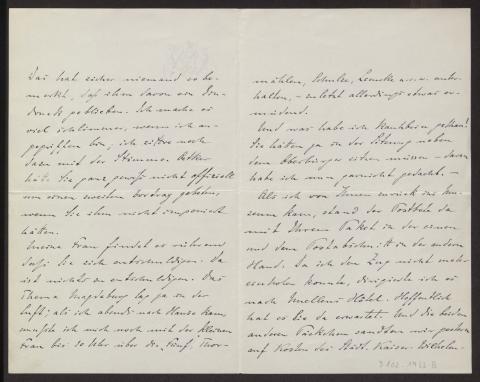 Das hat sicher niemand so be-
merkt, daß ihm davon ein
druck geblieben. Ich mache es
viel schlimmer, wenn ich an-
gegriffen bin, ich zittre noch
dazu mit der Stimme. Otto
hätte Sie ganz gewiß nicht offiziell
um einen zweiten Vortrag gebeten,
wenn Sie ihm nicht imponiert
hätten.
Meine Frau findet es rührend
daß Sie sich entschuldigen. Da
ist nichts zu entschuldigen. Das
Thema Magdeburg lag ja in der
Luft; als ich abends nach Hause kam,
mußte ich mich noch mit der kleinen
Frau bis 10 Uhr über die Fünf, Thor-
mählen, Schulze, Lemcke u.s.w. unter-
halten, – zuletzt allerdings etwas er-
müdend.
Und was habe ich
Sie hätten ja in der Sitzung neben
dem Oberbürger sitzen müssen – daran
habe ich nun garnicht gedacht. –
Als ich von Ihnen zurück ins Mu-
seum kam, stand der Postbote da
mit Ihrem Paket in der einen
und dem Postabschnitt in der anderen
Hand. Da ich den Zug nicht mehr
erreichen konnte, dirigirte ich es
nach Hotel. Hoffentlich
hat es Sie da erwartet. Und die beiden
anderen Päckchen sandten wir gestern
auf Kosten des Städt. Kaiser Wilhelm-